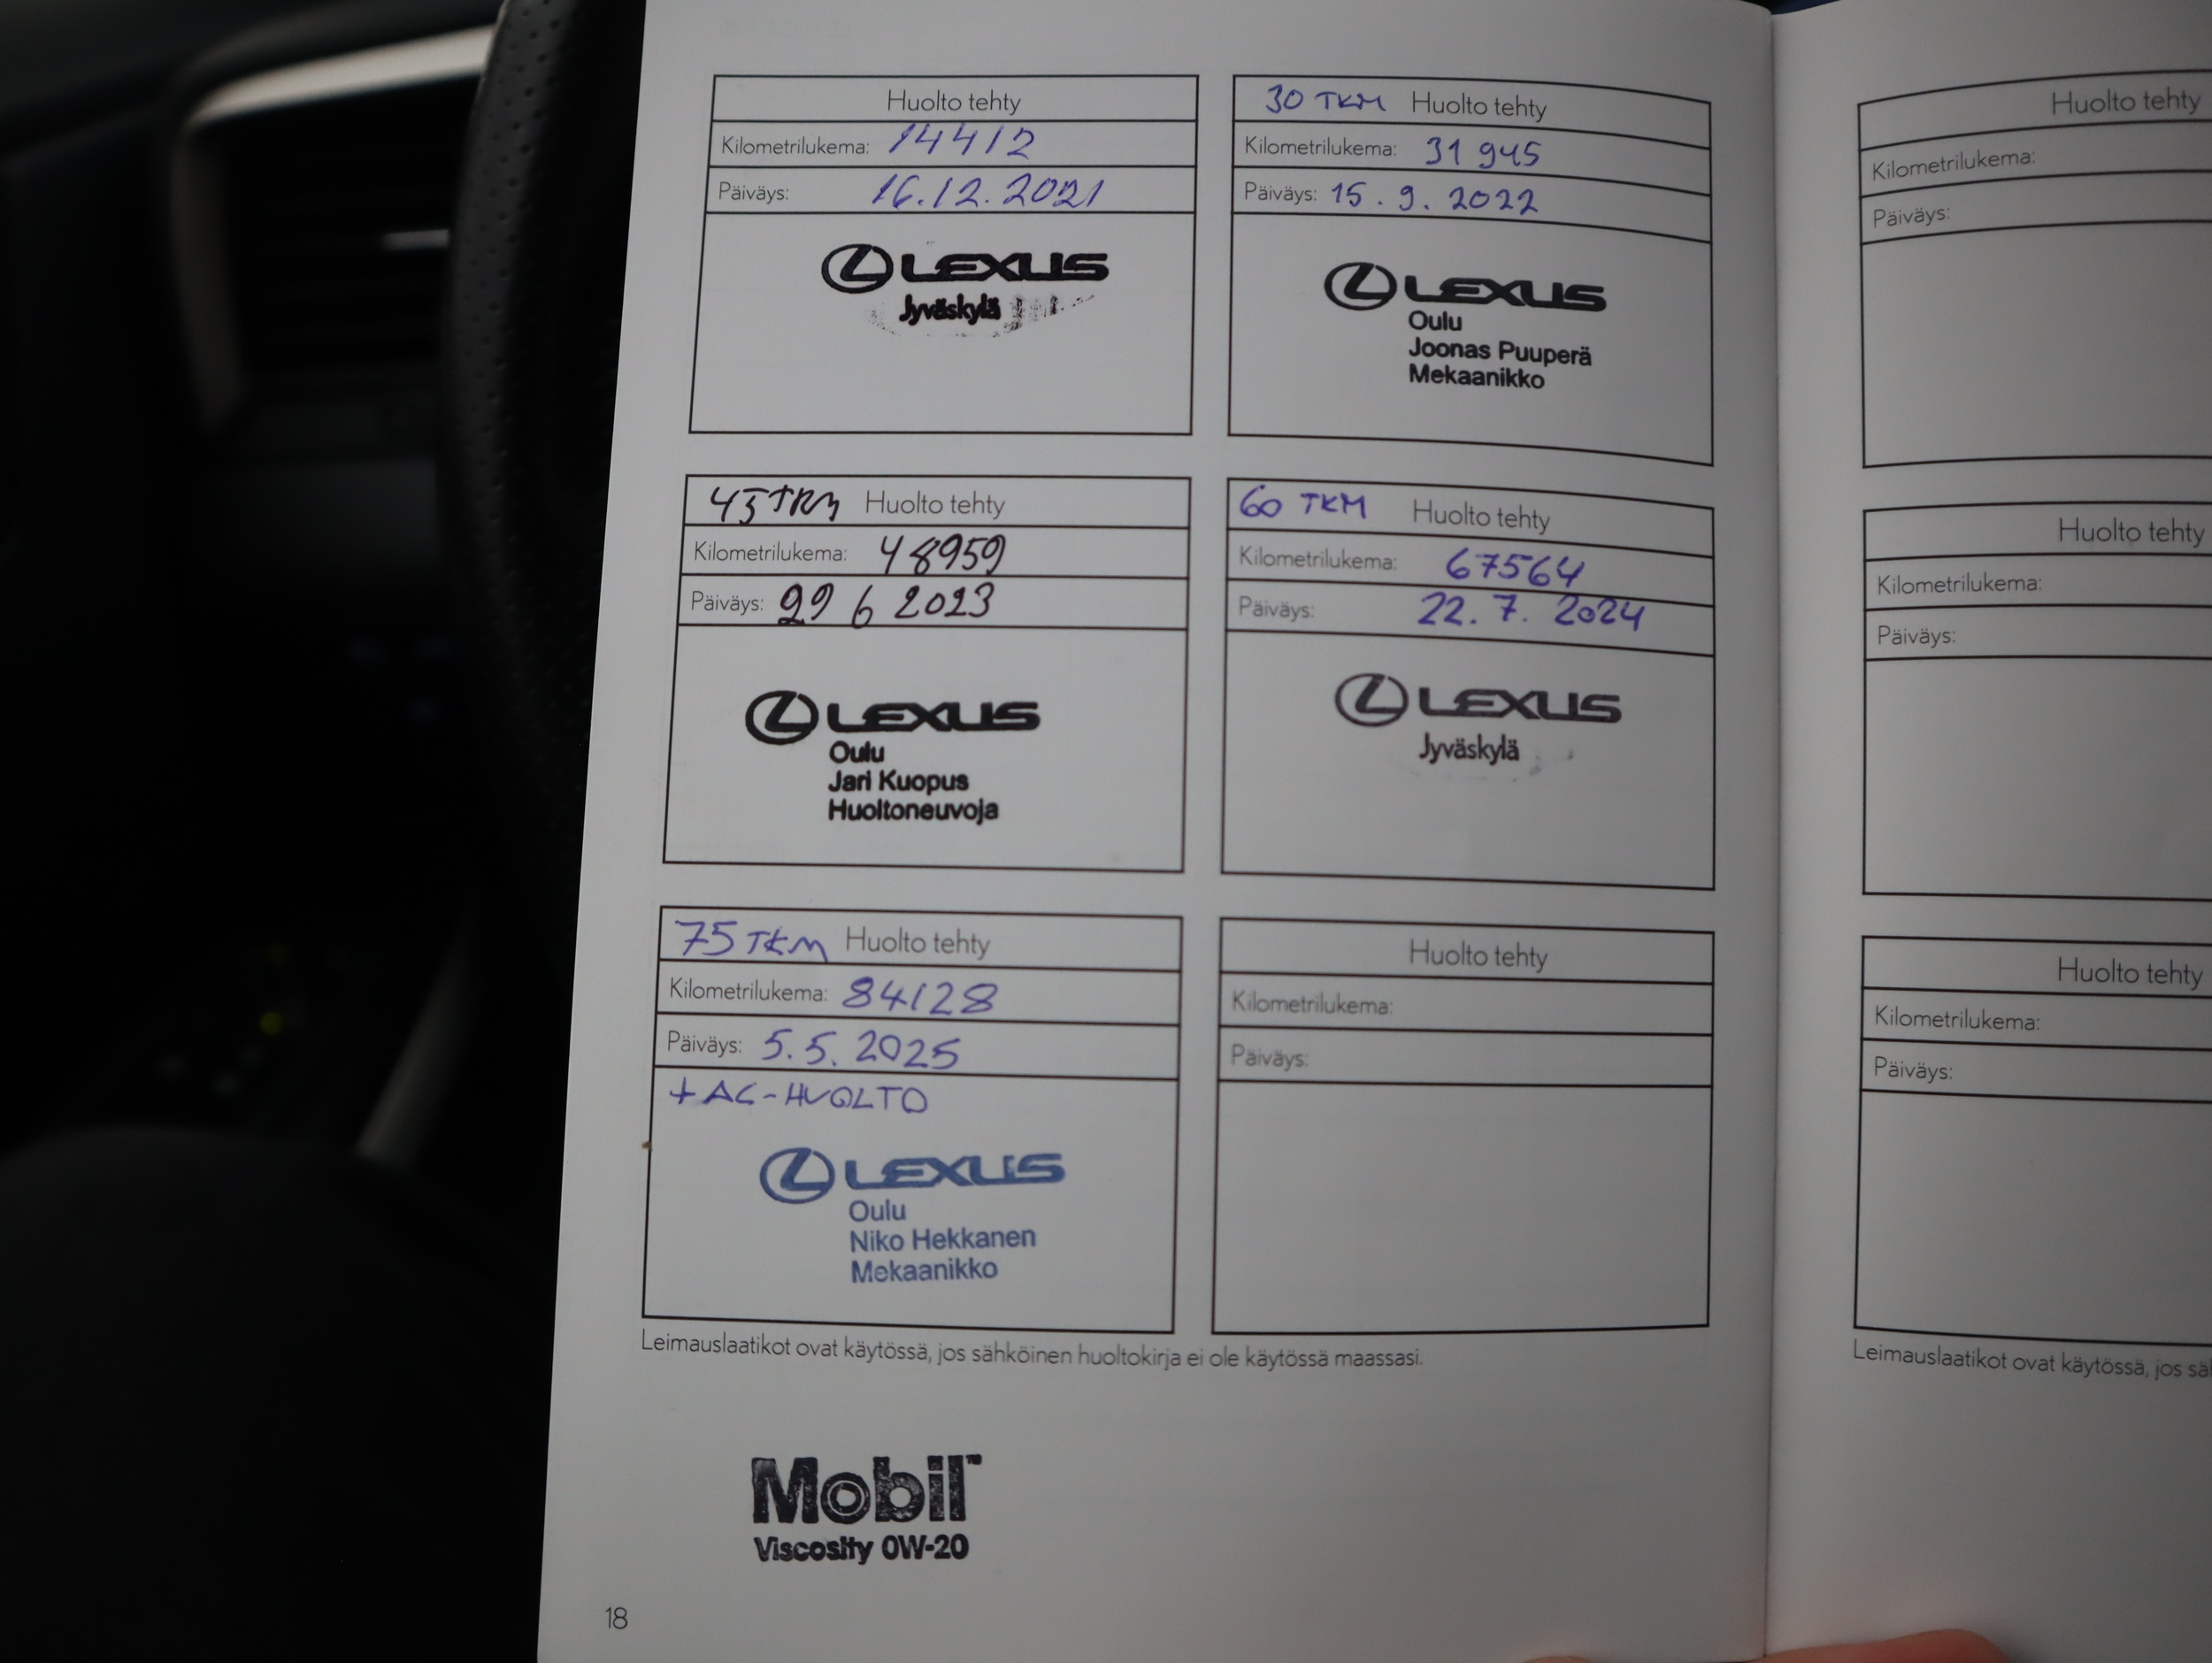 Huolto tehty
Kilometrilukema: 14412
Päiväys: 16.12.2021
LEXUS
Jyväskylä
30 TKM Huolto tehty
Kilometrilukema: 31 945
Päiväys: 15.9.2022
LEXUS
Oulu
Joonas Puuperä
Mekaanikko
45 TKM Huolto tehty
Kilometrilukema: 48959
Päiväys: 29 6 2023
LEXUS
Oulu
Jari Kuopus
Huoltoneuvoja
60 TKM Huolto tehty
Kilometrilukema: 67564
Päiväys: 22.7.2024
LEXUS
Jyväskylä
75 TKM Huolto tehty
Kilometrilukema: 84128
Päiväys: 5.5.2025
+ AC-HUOLTO
LEXUS
Oulu
Niko Hekkanen
Mekaanikko
Huolto tehty
Kilometrilukema:
Päiväys:
Leimauslaatikot ovat käytössä, jos sähköinen huoltokirja ei ole käytössä maassasi.
Mobil™
Viscosity 0W-20
18
Huolto tehty
Kilometrilukema:
Päiväys:
Huolto tehty
Kilometrilukema:
Päiväys:
Huolto tehty
Kilometrilukema:
Päiväys:
Leimauslaatikot ovat käytössä, jos